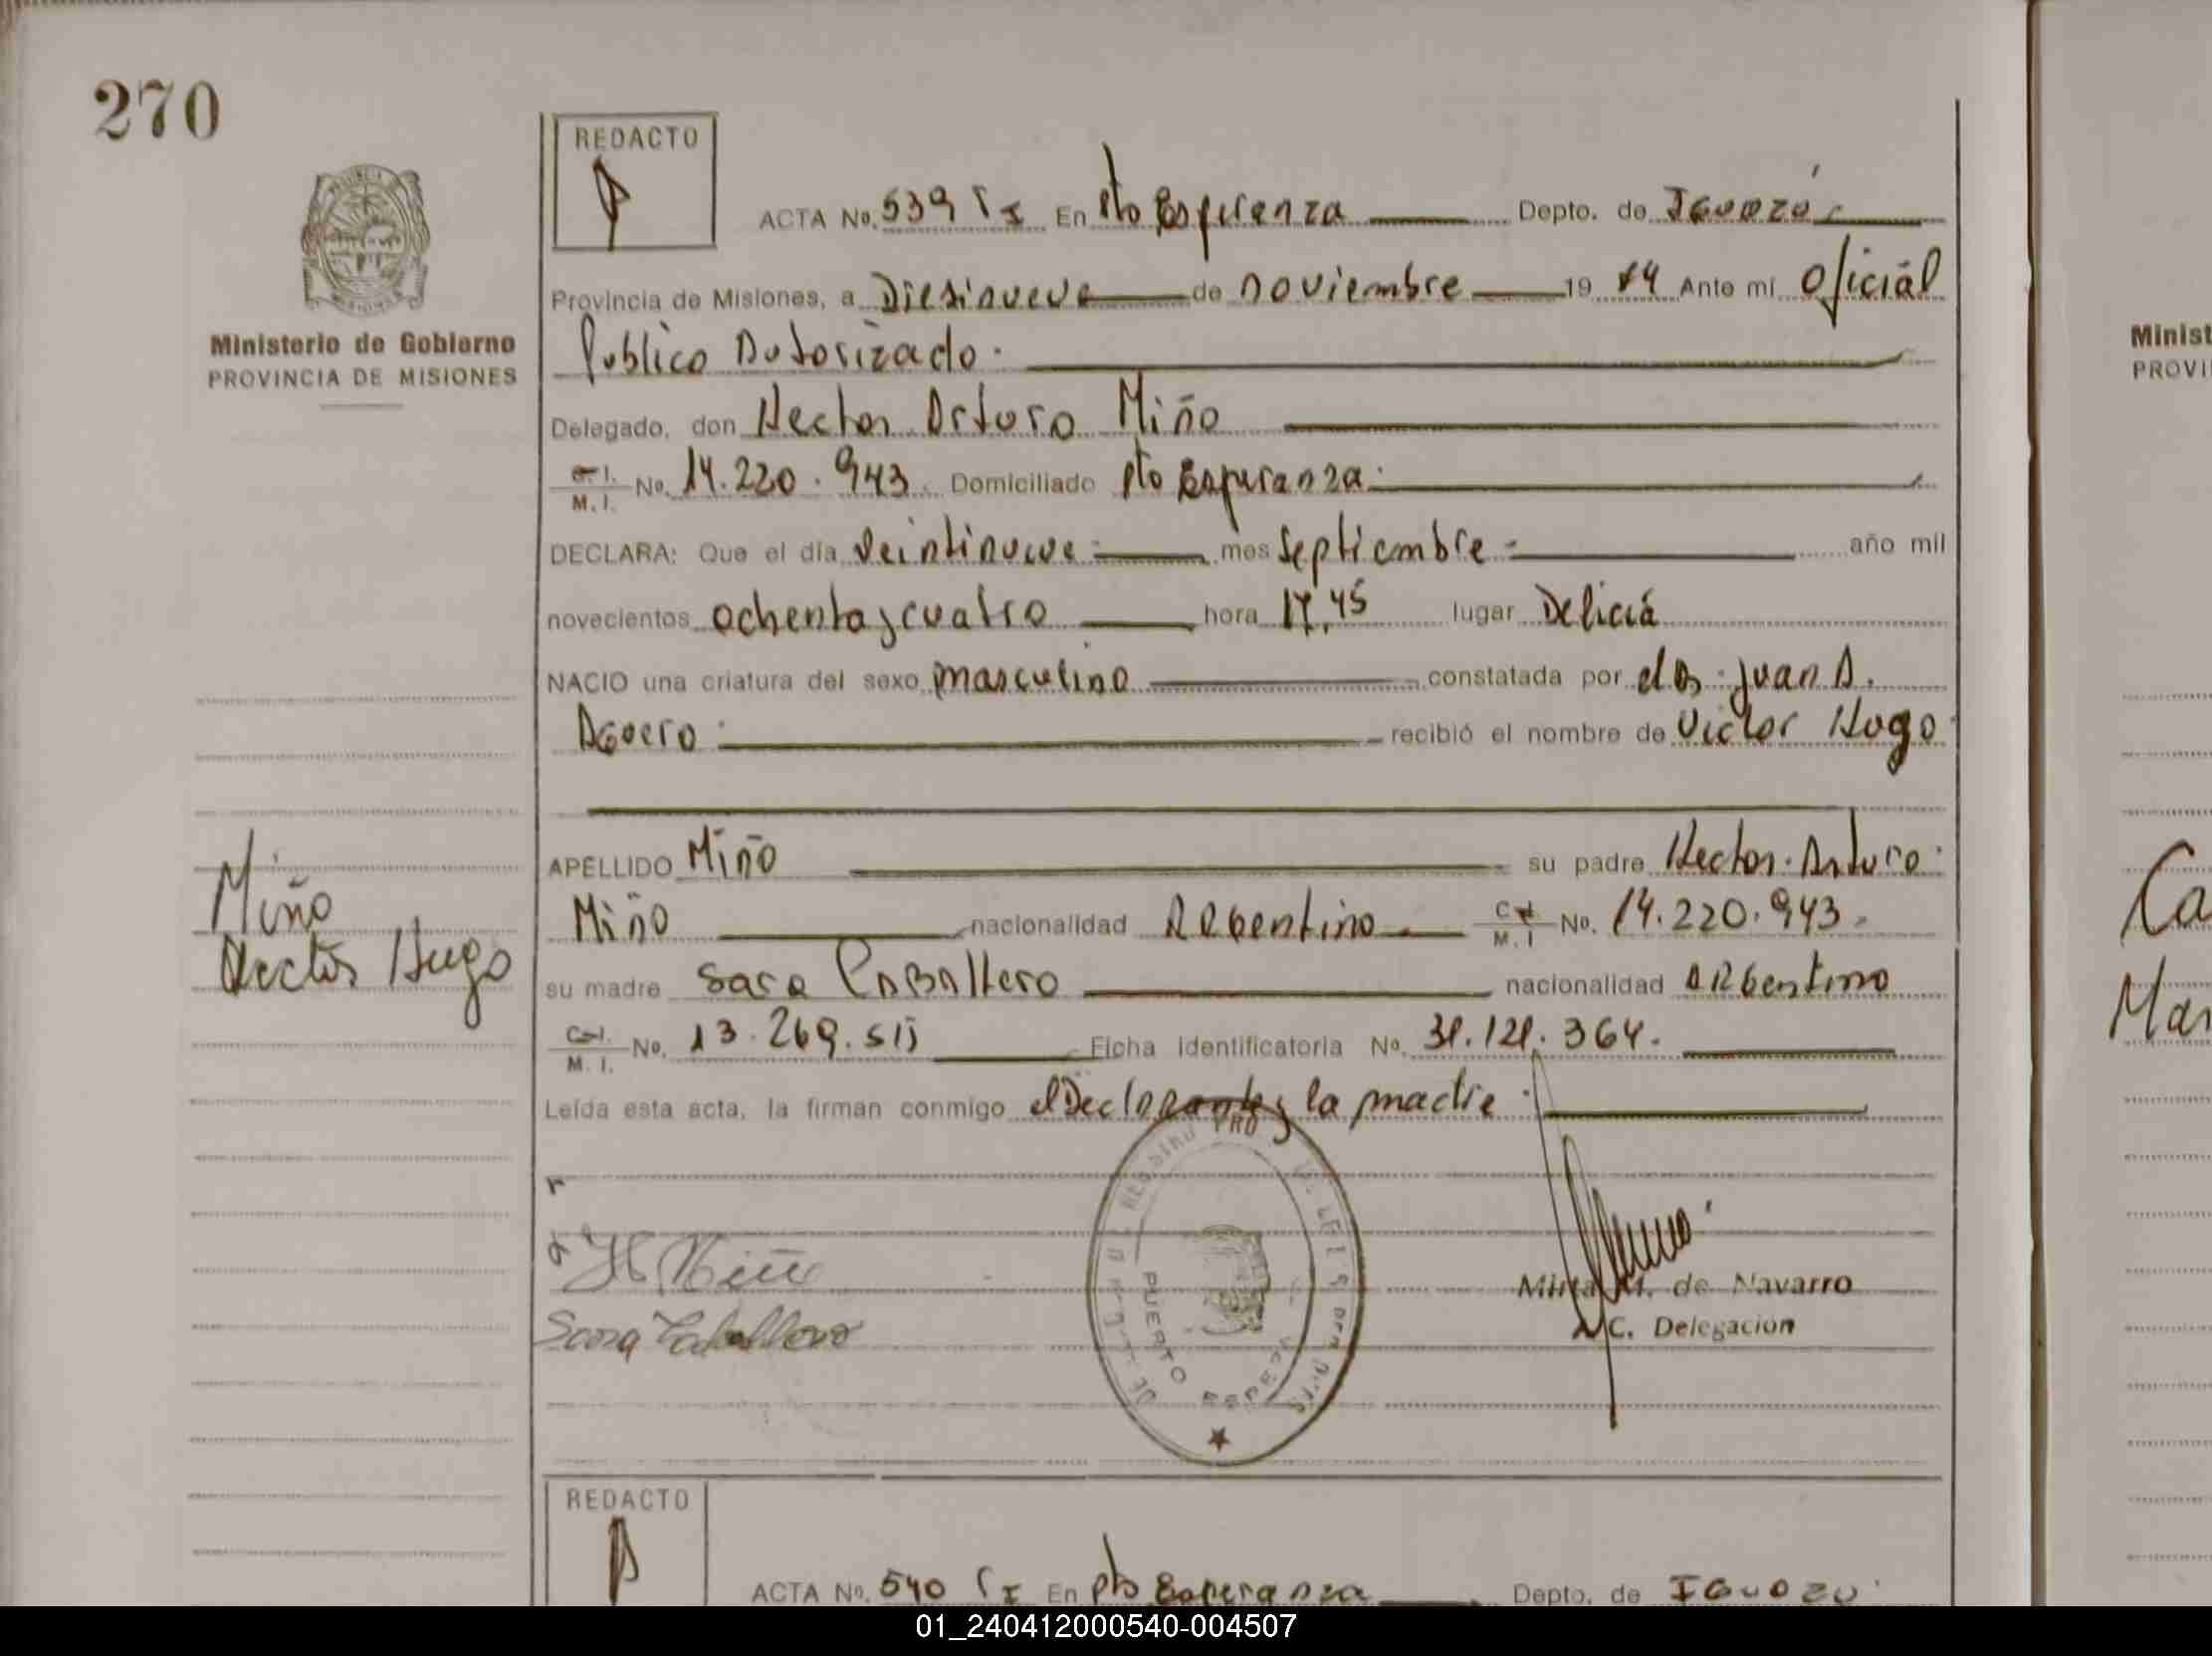 270
REDACTO
ACTA No. 539 En Pto Esperanza Depto. de Iguazú
Provincia de Misiones, a Diesinueve de noviembre 19 84 Ante mi Oficial
Ministerio de Gobierno
PROVINCIA DE MISIONES
Publico Autorizado.
Delegado, don Hector Arturo Miño
C. I. M. I. No. 14.220.943. Domiciliado Pto Esperanza.
DECLARA: Que el día veintinueve mes septiembre año mil
novecientos ochenta y cuatro hora 17,45 lugar Delicia
NACIO una criatura del sexo masculino constatada por el Dr. Juan A.
Aguero recibió el nombre de Victor Hugo
APELLIDO Miño su padre Hector Arturo
Miño nacionalidad Argentino C. I. M. I No. 14.220.943.
Miño
Hector Hugo
su madre Sara Caballero nacionalidad Argentino
C. I. M. I. No. 13.269. Ficha identificatoria No. 31.121.364.
Leída esta acta, la firman conmigo el Declarante y la madre.
H Miño
Sara Caballero
PUERTO ESPERANZA
Mirta M. de Navarro
A/C. Delegación
REDACTO
ACTA No. 540 En Pto Esperanza Depto. de Iguazu
Minist
PROVI
Ca
Mar
01_240412000540-004507